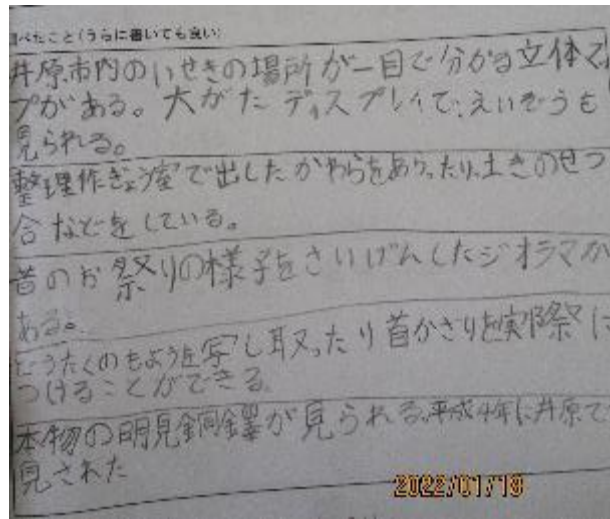 べたこと(うらに書いても良い)
井原市内のいせきの場所が一目で分かる立体マ
プがある。大がたディスプレイで、えいぞうも
見られる。
整理作ぎょう室で出したかわらをあらったり、土きのせつ
合などをしている。
昔のお祭りの様子をさいげんしたジオラマが
ある。
どうたくのもようを写し取ったり首かざりを実際祭に
つけることができる。
本物の明見銅鐸が見られる。平成4年に井原で
見された
2022/01/19